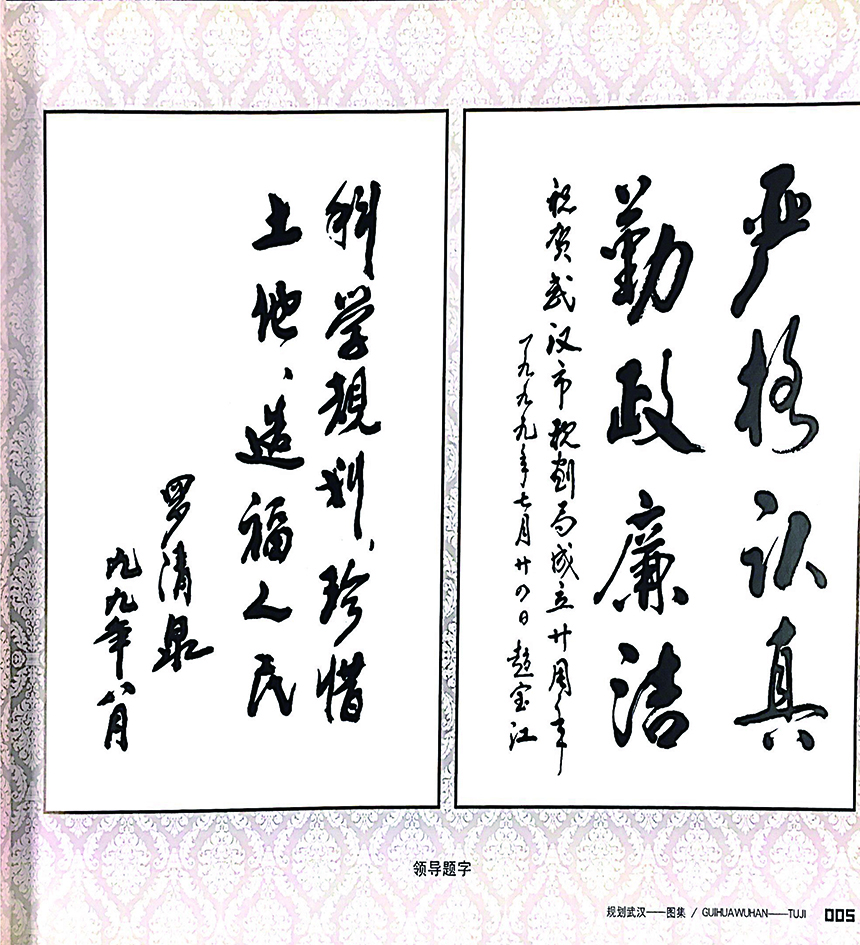 严格认真
勤政廉洁
祝贺武汉市规划局成立廿周年
一九九九年七月廿四日 赵宝江
科学规划、珍惜
土地、造福人民
罗清泉
九九年八月
领导题字
规划武汉——图集 / GUIHUAWUHAN——TUJI 005